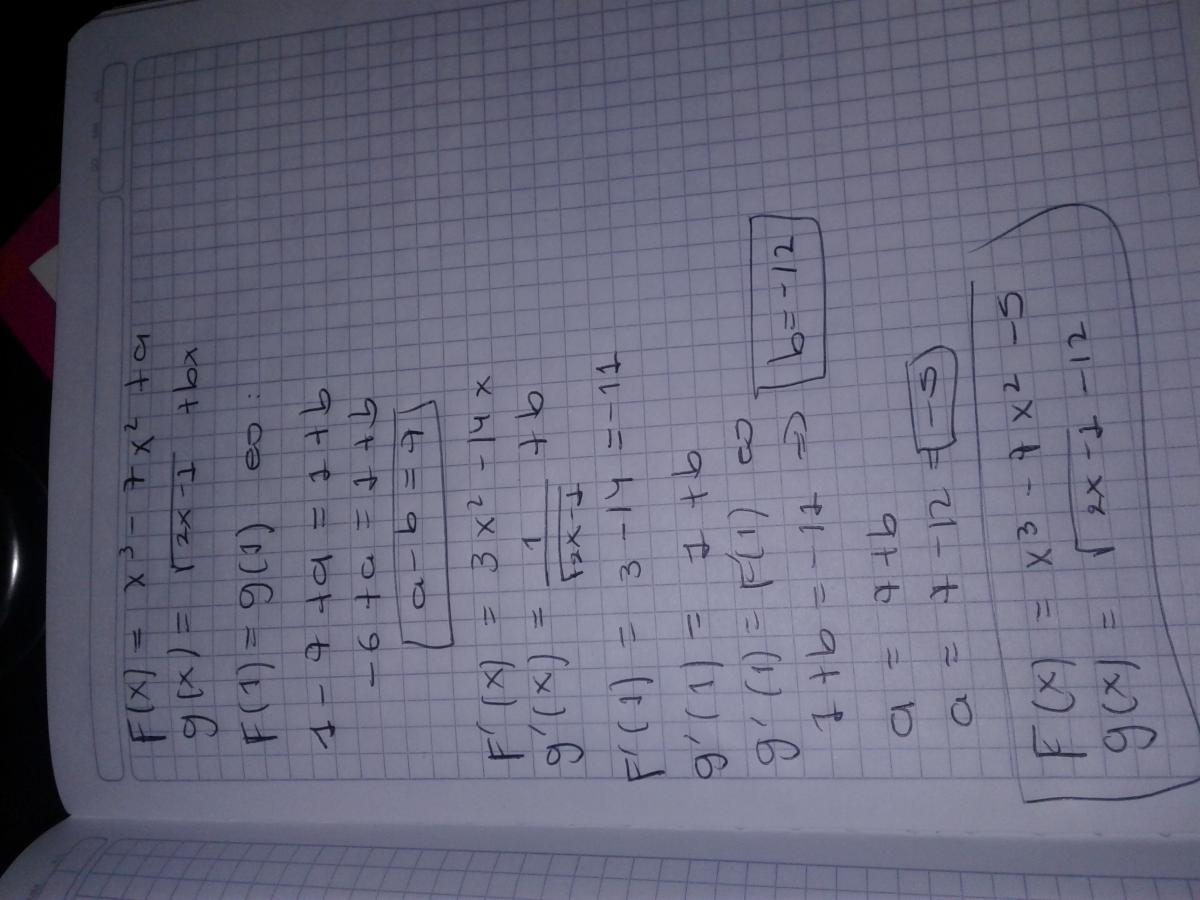 F(x) = x³ - 7x² + a
g(x) = √2x-1 + bx
F(1) = g(1) ∞:
1 - 7 + a = 1 + b
-6 + a = 1 + b
a - b = 7
F'(x) = 3x² - 14x
g'(x) = 1/√2x-1 + b
F'(1) = 3 - 14 = -11
g'(1) = 1 + b
g'(1) = F(1) ∞
1 + b = -11 ⇒ b = -12
a = 7 + b
a = 7 - 12 = -5
F(x) = x³ - 7x² - 5
g(x) = √2x-1 - 12